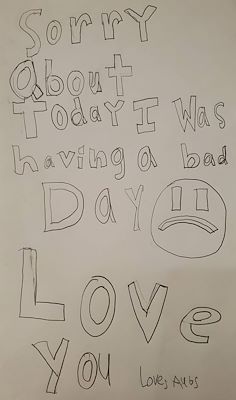 Sorry
About
Today I Was
having a bad
Day
Love
You
Love, Aubs